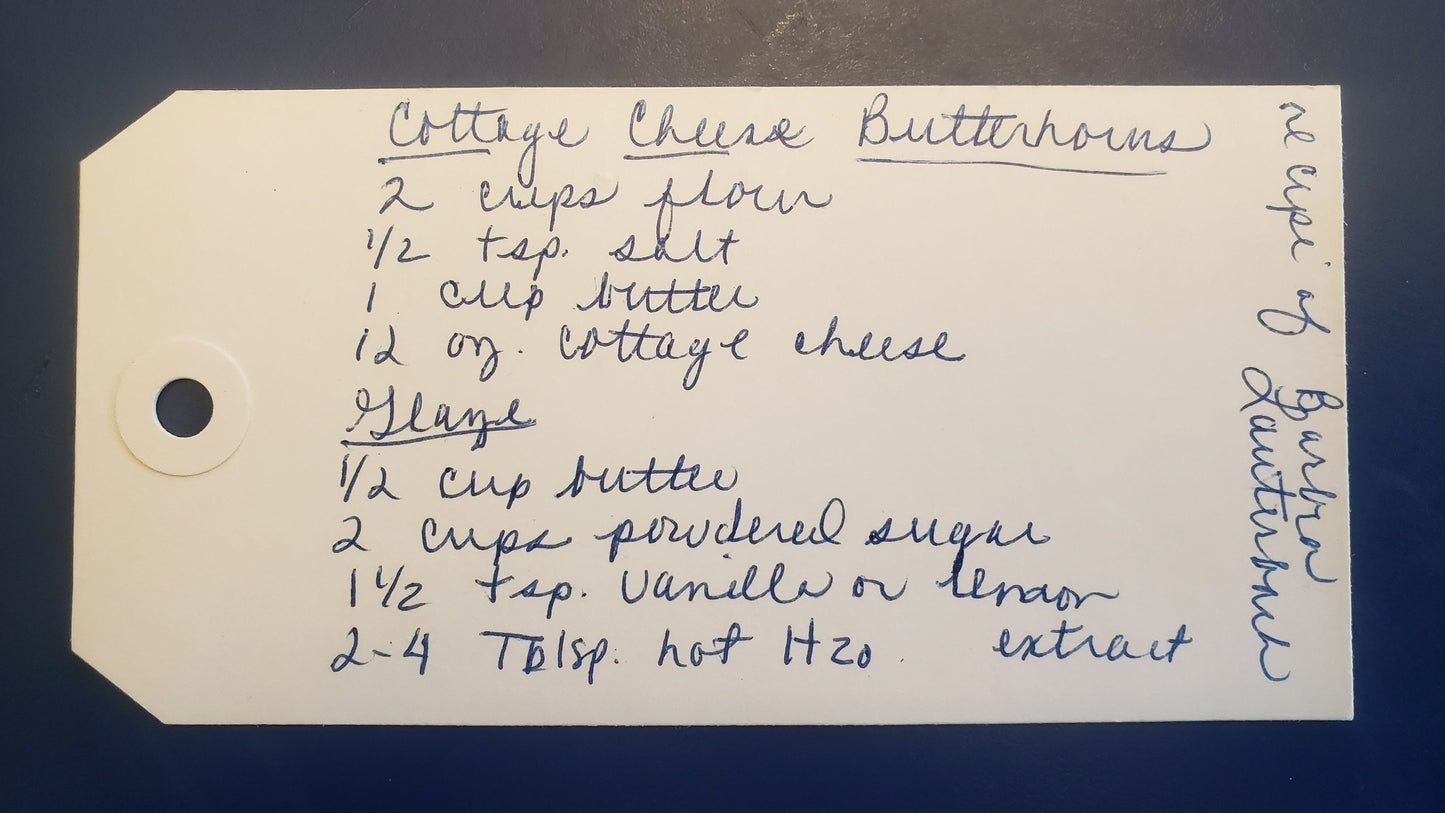 Cottage Cheese Butterhorns
2 cups flour
1/2 tsp. salt
1 cup butter
12 oz. cottage cheese
Glaze
1/2 cup butter
2 cups powdered sugar
1 1/2 tsp. vanilla or lemon
extract
2-4 Tblsp. hot H2o
recipe of Barbra